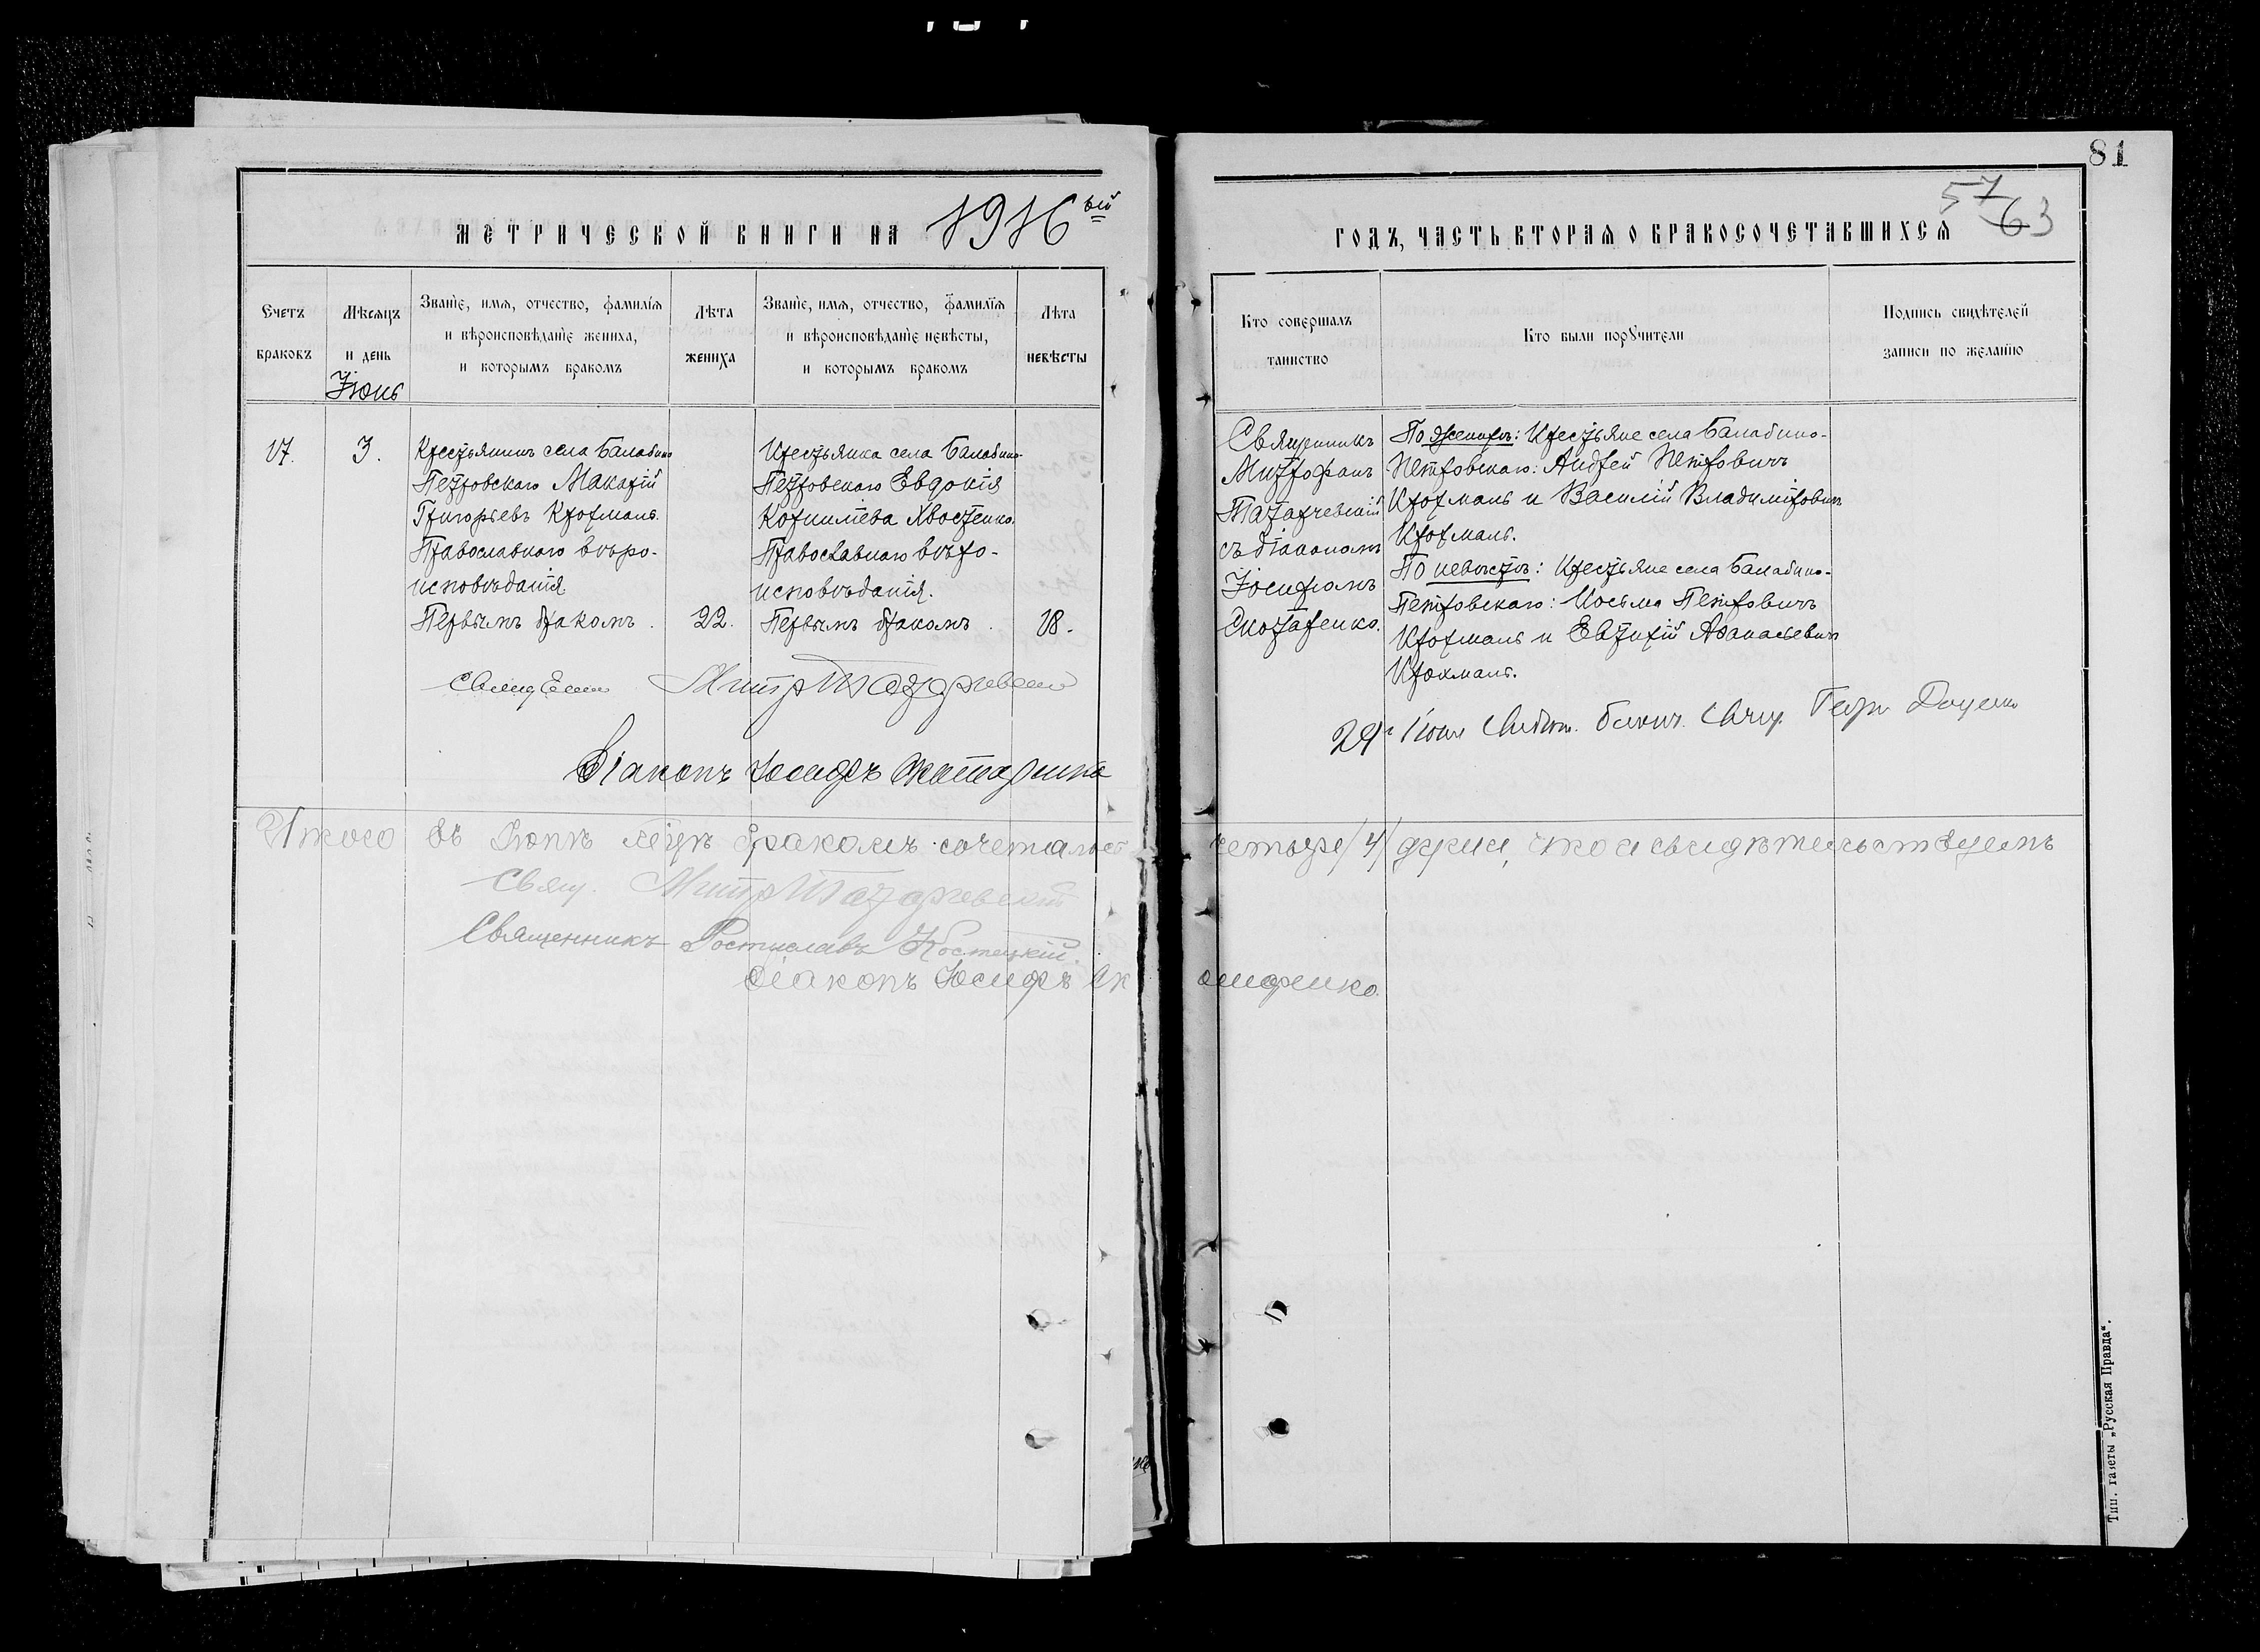 81
57
63
МЕТРИЧЕСКОЙ КНИГИ НА 1916ый
ГОДЪ, ЧАСТЬ ВТОРАЯ О БРАКОСОЧЕТАВШИХСЯ
Счетъ
браковъ
Мѣсяцъ
и день
Іюнь
Званіе, имя, отчество, фамилія
и вѣроисповѣданіе жениха,
и которымъ бракомъ
Лѣта
жениха
Званіе, имя, отчество, фамилія
и вѣроисповѣданіе невѣсты,
и которымъ бракомъ
Лѣта
невѣсты
Кто совершалъ
таинство
Кто были порꙋчители
Подпись свидѣтелей
записи по желанію
17.
3.
Крестьянинъ села Балабино
Петровскаго Макарій
Григорьевъ Крохмаль.
Православнаго вѣро-
исповѣданія
Первымъ бракомъ.
22.
Крестьянка села Балабино-
Петровскаго Евдокія
Корниліева Хвостенко.
Православнаго вѣро-
исповѣданія.
Первымъ бракомъ.
18.
Священникъ
Митрофанъ
Татарчевскій
съ діакономъ
Іосифомъ
Скотаренко.
По женихѣ: Крестьяне села Балабино-
Петровскаго: Андрей Петровичъ
Крохмаль и Василій Владиміровичъ
Крохмаль.
По невѣстѣ: Крестьяне села Балабино-
Петровскаго: Косьма Петровичъ
Крохмаль и Евтихій Аѳанасьевичъ
Крохмаль.
Митр Татарчевскій
Діаконъ Іосифъ Скотаренко
29 Іюня
Итого въ Іюнѣ м-цѣ бракомъ сочеталось четыре /4/ что и свидѣтельствуемъ
Свящ. Митр Татарчевскій
Священникъ Ростиславъ Костецкій.
Діаконъ Іосифъ
Тип. газеты „Русская Правда“.